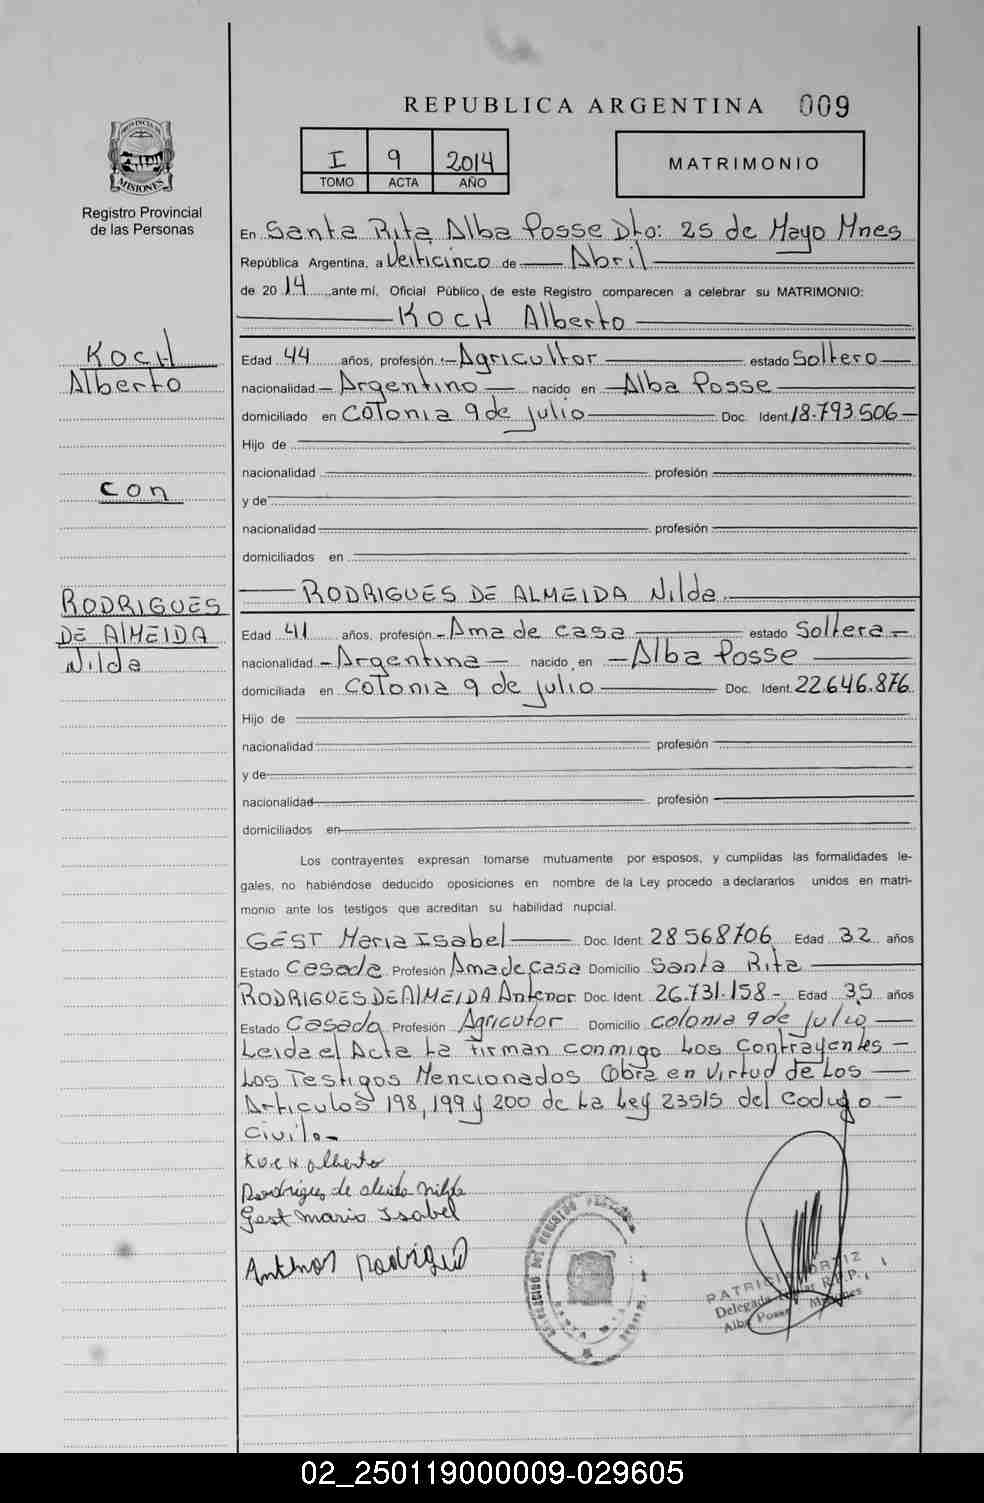 REPUBLICA ARGENTINA 009
I 9 2014
TOMO ACTA AÑO
MATRIMONIO
PROVINCIA DE
MISIONES
Registro Provincial
de las Personas
En Santa Rita Alba Posse Dto: 25 de Mayo Mnes
República Argentina, a Veiticinco de Abril
de 2014, ante mí, Oficial Público de este Registro comparecen a celebrar su MATRIMONIO:
KOCH Alberto
KOCH
Alberto
con
RODRIGUES
DE AlMEIDA
Nilda
Edad 44 años, profesión Agricultor estado Soltero
nacionalidad Argentino nacido en Alba Posse
domiciliado en Colonia 9 de julio Doc. Ident. 18.793.506
Hijo de
nacionalidad profesión
y de
nacionalidad profesión
domiciliados en
RODRIGUES DE ALMEIDA Nilda
Edad 41 años, profesión Ama de casa estado Soltera
nacionalidad Argentina nacido en Alba Posse
domiciliada en Colonia 9 de julio Doc. Ident. 22.646.876
Hijo de
nacionalidad profesión
y de
nacionalidad profesión
domiciliados en
Los contrayentes expresan tomarse mutuamente por esposos, y cumplidas las formalidades le-
gales, no habiéndose deducido oposiciones en nombre de la Ley procedo a declararlos unidos en matri-
monio ante los testigos que acreditan su habilidad nupcial.
GEST Maria Isabel Doc. Ident. 28568706 Edad 32 años
Estado Casada Profesión Ama de casa Domicilio Santa Rita
RODRIGUES DE AlMEIDA Antenor Doc. Ident. 26.731.158- Edad 35 años
Estado Casado Profesión Agricutor Domicilio colonia 9 de julio
Leida el Acta La firman conmigo Los Contrayentes
Los Testigos Mencionados Obra en Virtud de Los
Articulos 198, 199 y 200 de La Ley 23515 del Codigo
Civil.-
Koch Alberto
Rodrigues de almeida nilda
Gest maria Isabel
Antenor Rodrigues
PATRICIA ORTIZ
Delegada R.P.P.
Alba Posse Misiones
02_250119000009-029605